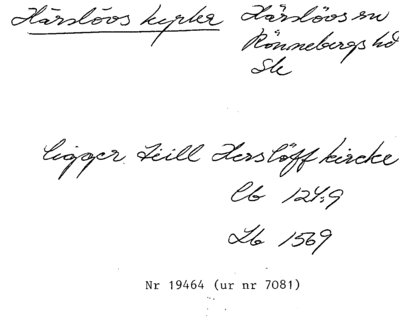 Härslövs kyrka Härslövs sn
Rönnebergs hd
Sk
ligger till Herslöff kircke
Lb 124:9
Lb 1569
Nr 19464 (ur nr 7081)